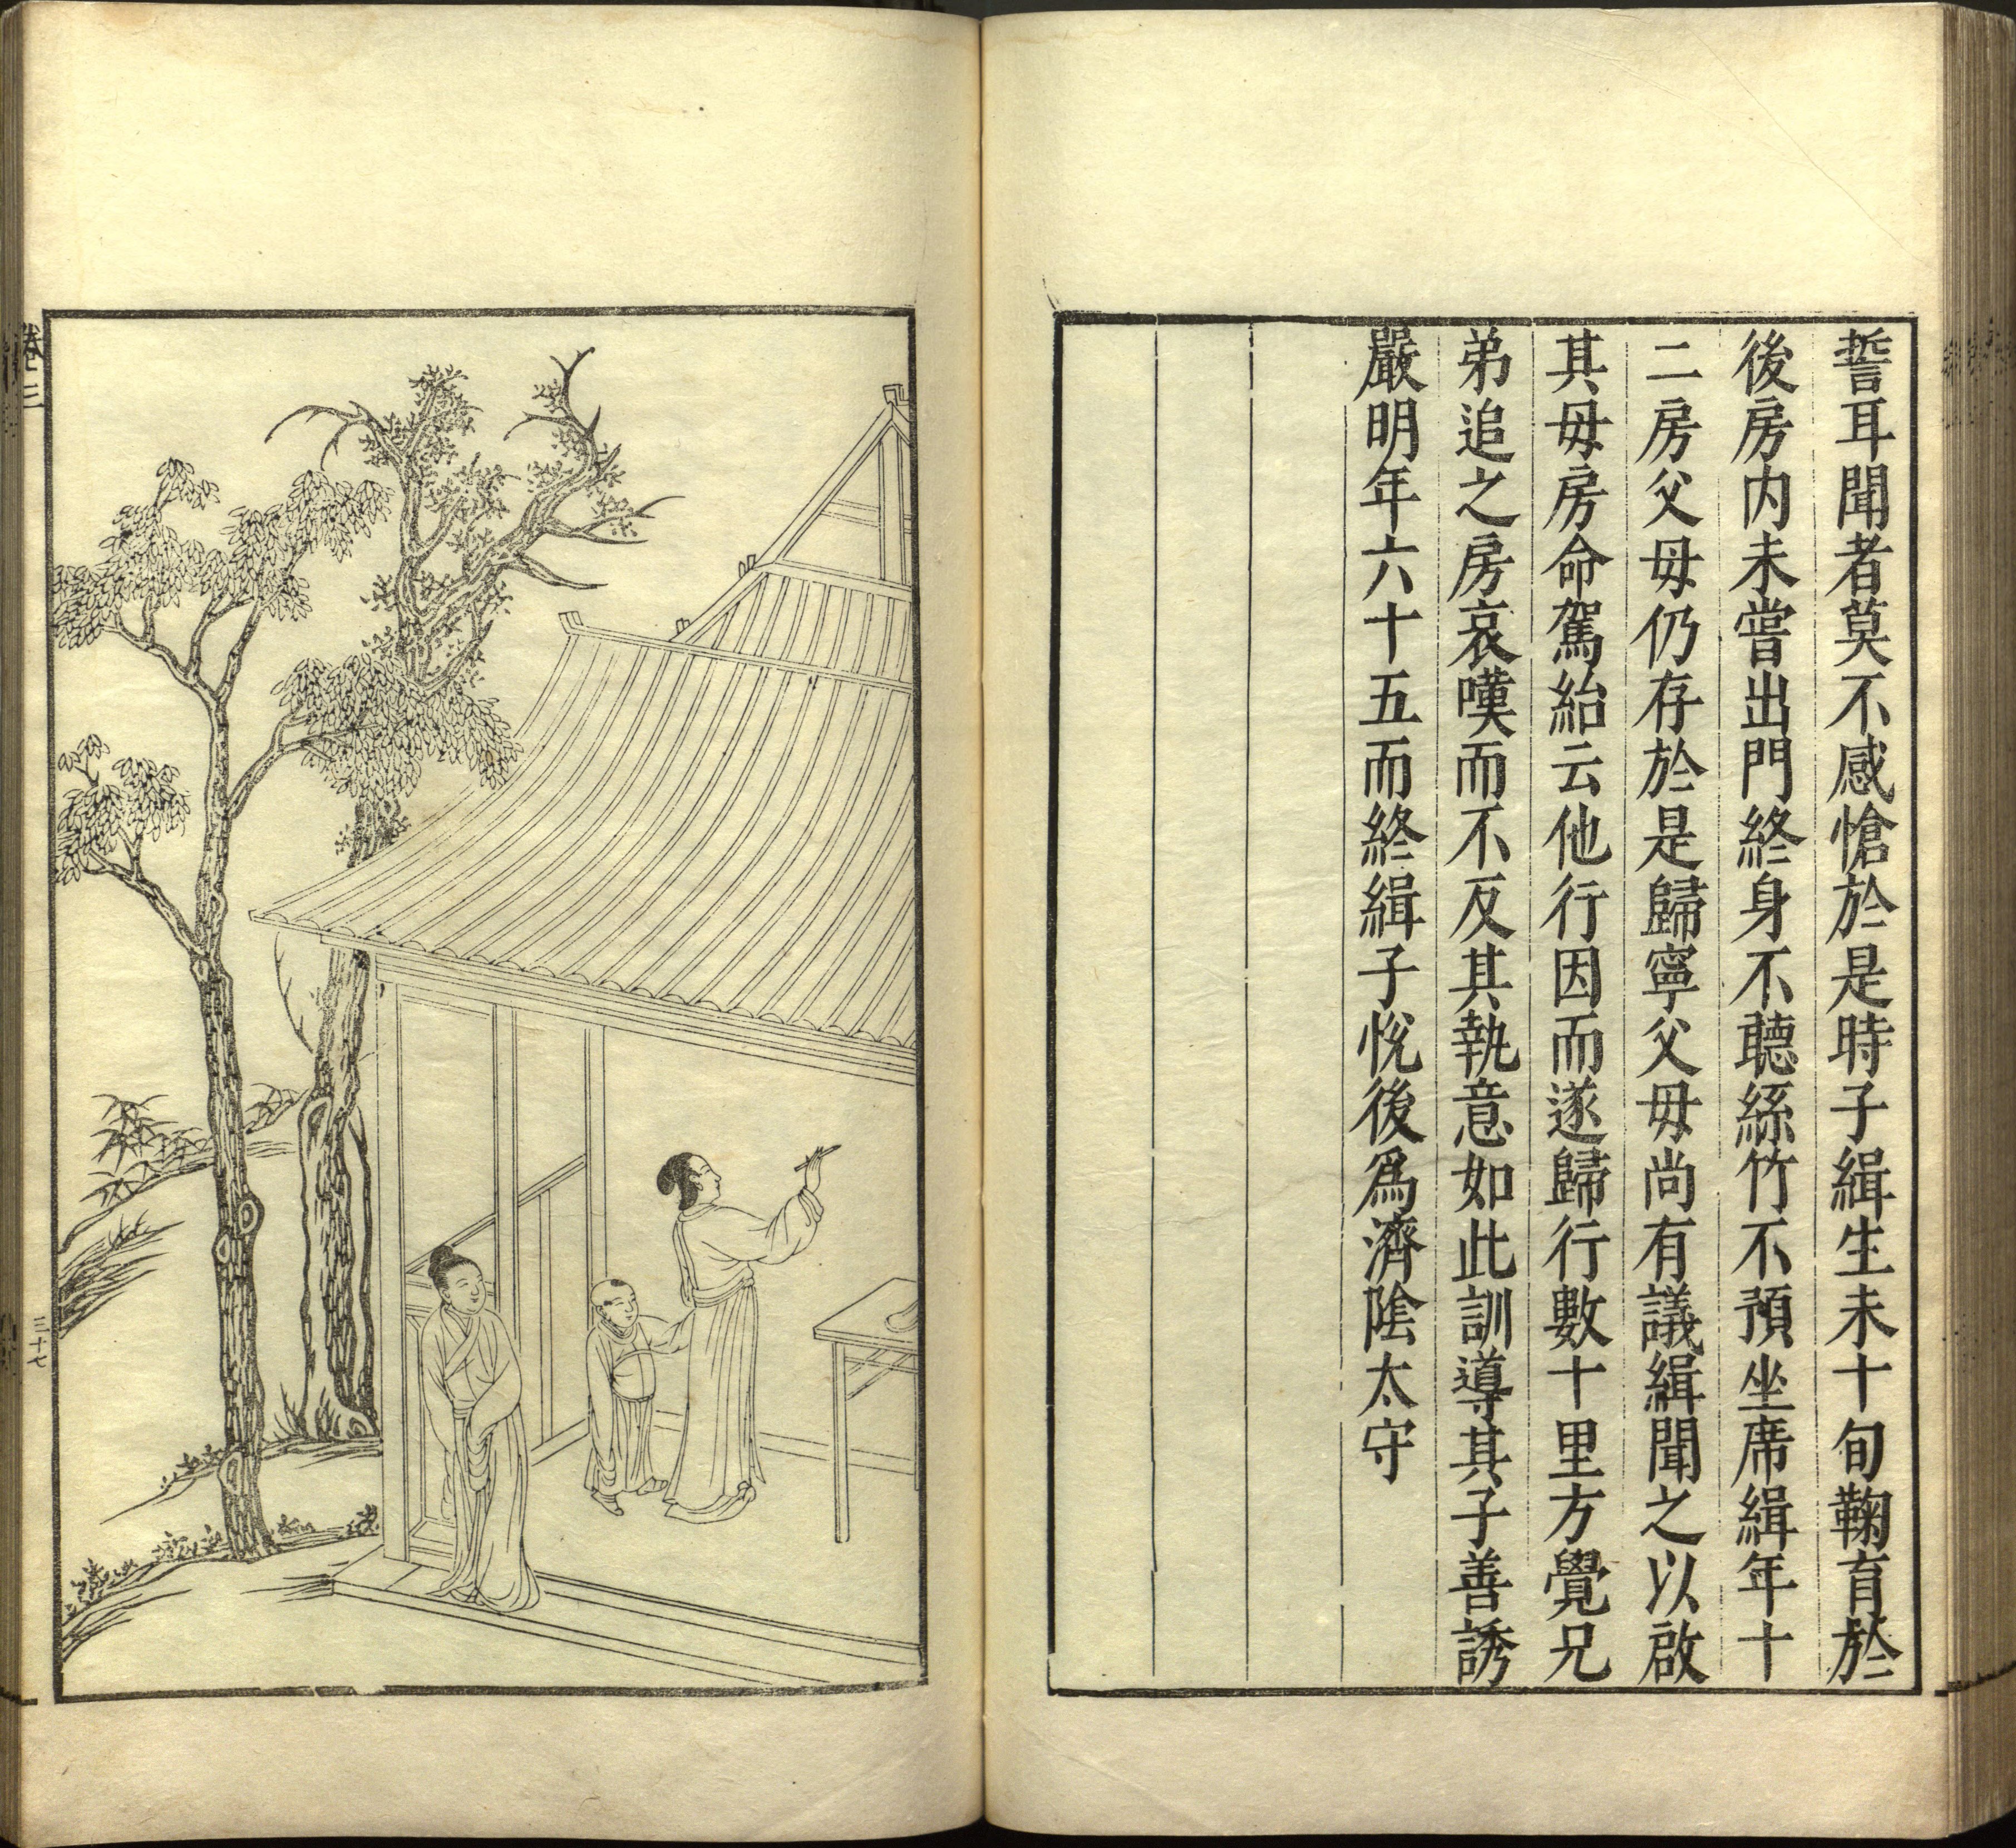 誓耳聞者莫不感愴於是時子緝生未十旬鞠育於
後房内未嘗出門終身不聽絲竹不預坐席緝年十
二房父毋仍存於是歸寧父毋尚有議緝聞之以啟
其毋房命駕紿云他行因而遂歸行數十里方覺兄
弟追之房哀嘆而不反其執意如此訓導其子善誘
嚴明年六十五而終緝子悅後爲濟陰太守
卷三
三十七